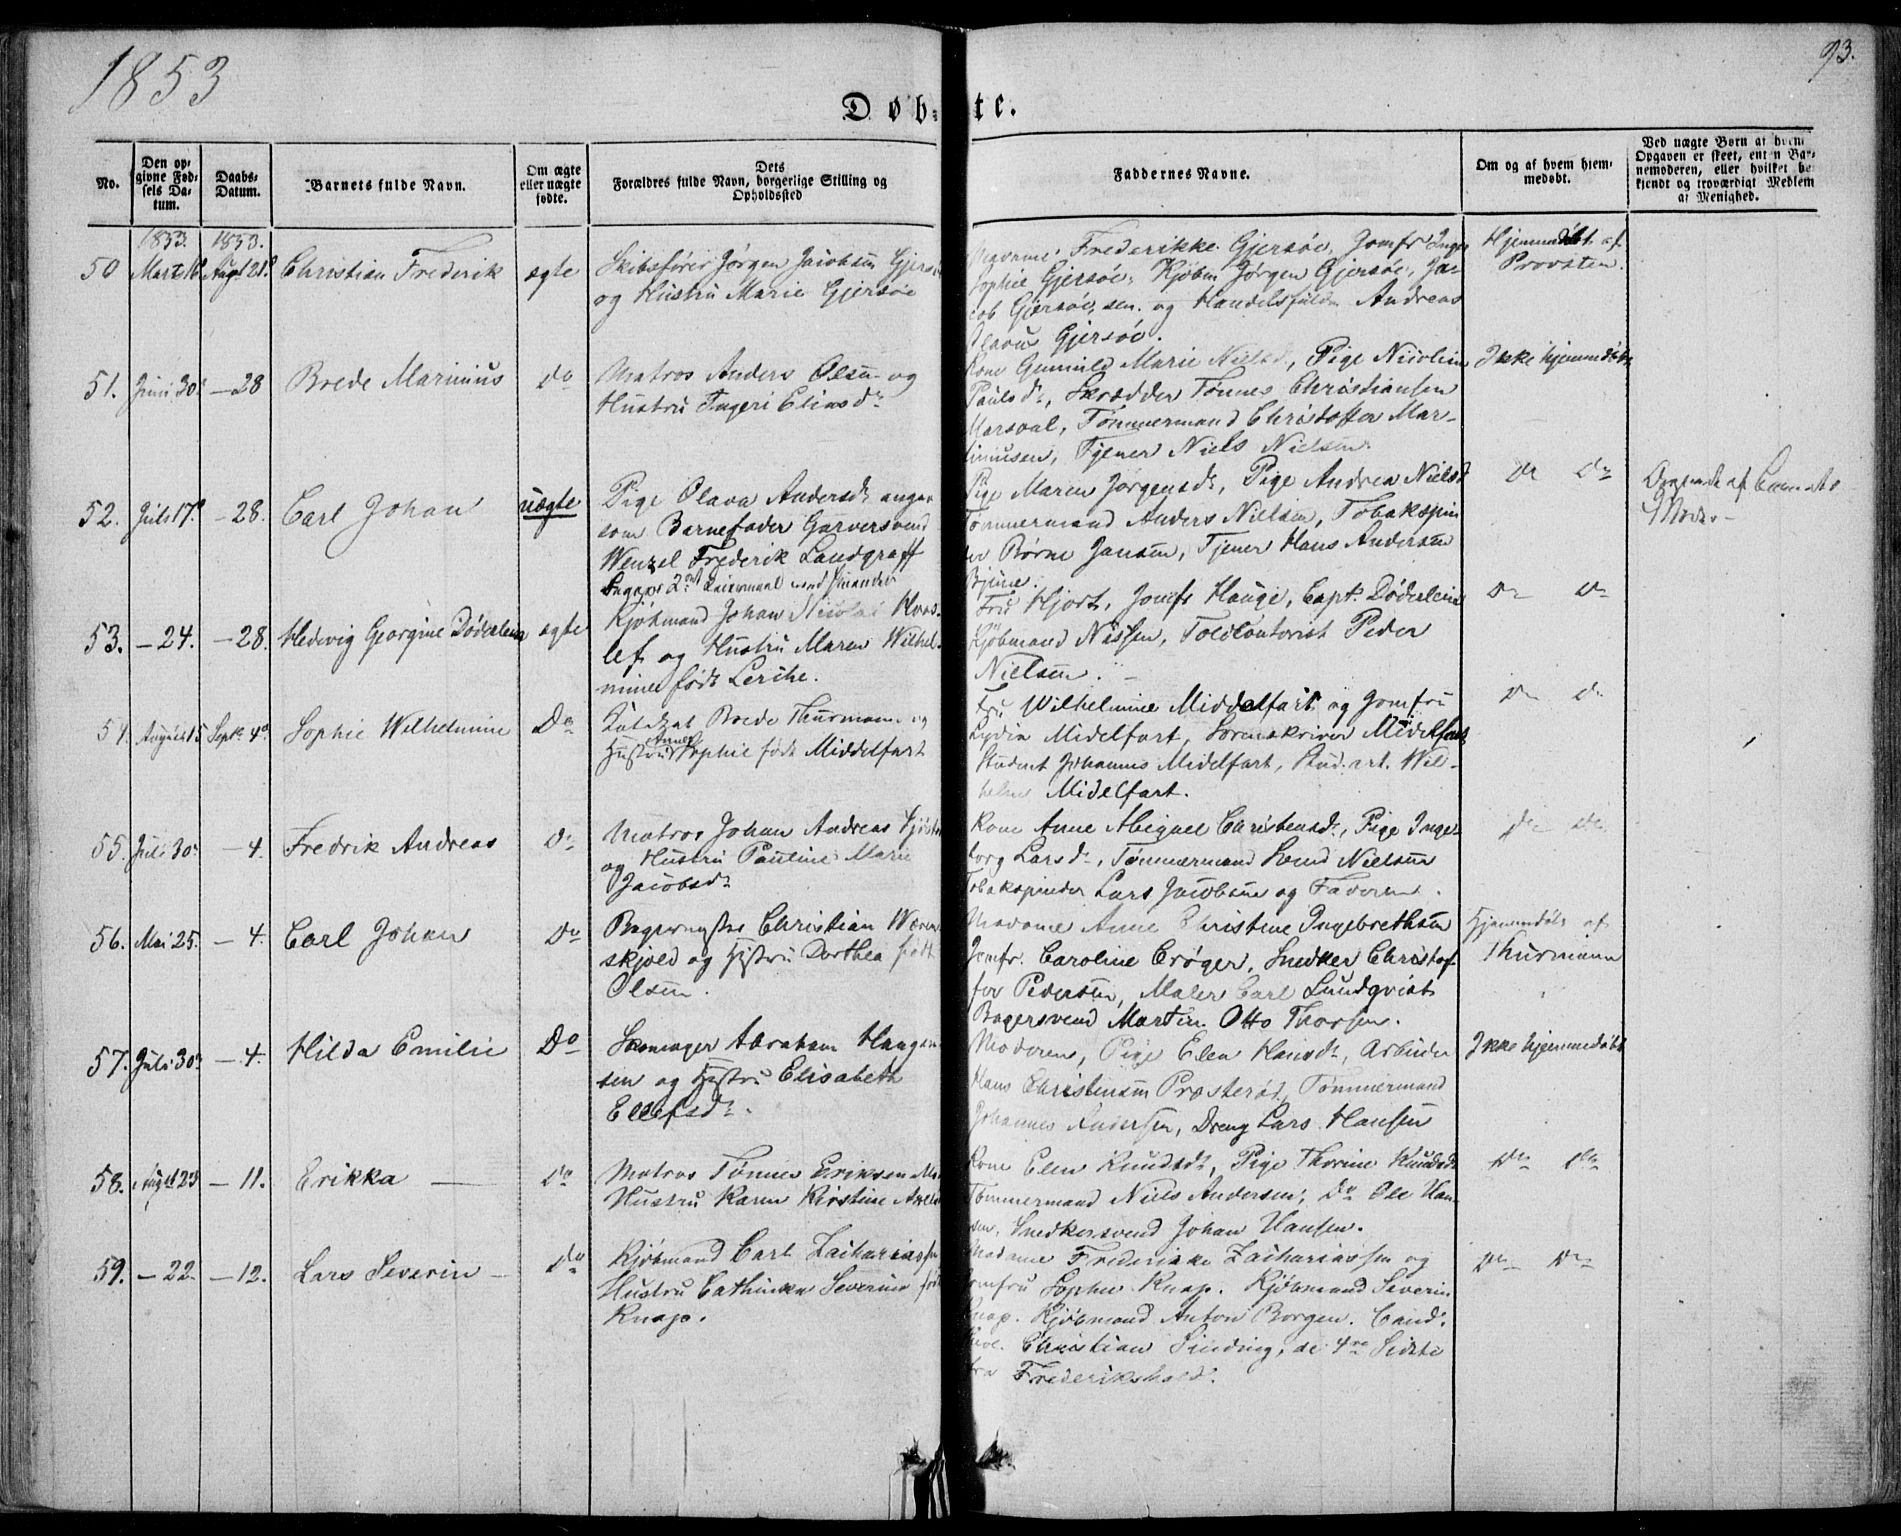 1853
93.
Døb-te.
No.
Den op-
givne Fød-
sels Da-
tum.
Daabs-
Datum.
Barnets fulde Navn.
Om ægte
eller uægte
fødte.
Dets
Forældres fulde Navn, borgerlige Stilling og
Opholdssted
Faddernes Navne.
Om og af hvem hjem-
medøbt.
Ved uægte Børn at hvem
Opgaven er skeet, enten Bar-
nemoderen, eller hvilket be-
kjendt og troværdigt Medlem
af Menighed.
1853. 1853.
50 Marts 16 Augt 21d Christian Frederik ægte
Skibsfører Jørgen Jacobsen Gjersøe
og Hustru Marie Gjersøe
Madame Frederikke Gjersøe, Jomfr Inger
Sophie Gjersøe, Kjøbm Jørgen Gjersøe, Ja-
cob Gjersøe, sen. og Handelsfuldm Andreas
Olaus Gjersøe.
Hjemmedøbt af
Provsten.
51. Juni 30 - 28 Brede Marinius do
Matros Anders Olsen og
Hustru Ingeri Eliasdr
Kone Gunnild Marie Nielsd, Pige Nicoline
Paulsdr, Skrædder Tønnes Christiansen
Marsval, Tømmermand Christoffer Mar-
tiniusen, Tjener Niels Nielsen.
Ikke hjemmedøbt
52. Juli 17d - 28. Carl Johan uægte
Pige Olava Andersdr angav
som Barnefader Garversvend
Wenzel Frederik Landgraff
2det Leiermaal
Pige Maren Jørgensdr, Pige Andrea Nielsd
Tømmermand Anders Nielsen, Tobakspin
der Børne Jansen, Tjener Hans Andersen
Bjune.
do do
af
Moder
53. - 24. - 28. Hedvig Georgine Døderlein ægte
Kjøbmand Johan Nicolai Hvas-
lef og Hustru Maren Wilhel-
mine født Lerche.
Fru Hjort, Jomfr Hauge, Capt. Døderlein
Kjøbmand Nissen, Toldcontorist Peder
Nielsen.
do do
54. August 15 Septbr 4d Sophie Wilhelmine Do
Brede Thurmann og
Hustru Anne Sophie født Middelfart
Fru Wilhelmine Middelfart og Jomfru
Lydia Midelfart, Sorenskriver Midelfart
Student Johannes Midelfart, Stud. art. Wil-
helm Midelfart.
do do
55. Juli 30 - 4. Fredrik Andreas do
Matros Johan Andreas
og Hustru Pauline Marie
Jacobsdr
Kone Anne Abigael Christensdr, Pige Inge
borg Larsdr, Tømmermand Svend Nielsen
Tobakspinder Lars Jacobsen og Faderen.
do do
56. Mai 25. - 4. Carl Johan Do
Bagermester Christian Weren-
skjold og Hustru Dorthea født
Olsen.
Madame Anne Christine Ingebrethsen
Jomfr. Caroline Crøger, Snedker Christof
fer Pedersen, Maler Carl Lundqvist
Bagersvend Martin Otto Thorsen.
Hjemmedøbt af
Thurmann
57. Juli 30 - 4. Hilda Emilie Do
Skomager Abraham Haagen
sen og Hustru Elisabeth
Ellefsdr.
Moderen, Pige Elen Hansdr, Arbeider
Hans Christiansen Prosterød, Tømmermand
Johannes Andersen, Dreng Lars Hansen
Ikke hjemmedøbt
58. Augt 23 - 11. Erikka - do
Matros Tønnes Eriksen
Hustru Karen Kirstine
Kone Elen Knudsdr, Pige Thorine Knudsd
Tømmermand Niels Andersen, Do Ole Han-
sen, Snedkersvend Johan Hansen.
do do
59. - 22. - 12. Lars Severin - do
Kjøbmand Carl Zachariassen
Hustru Cathinka Severine født
Knap.
Madame Frederikke Zachariassen og
Jomfru Sophie Knap. Kjøbmand Severin
Knap. Kjøbmand Anton Borgen. Cand.
Christian Sinding, de 4re Sidste
fra Frederikshald.
do do